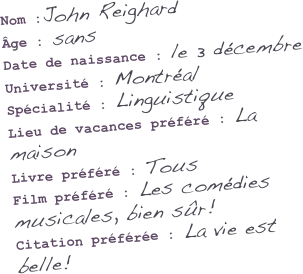 Nom : John Reighard
Âge : sans
Date de naissance : le 3 décembre
Université : Montréal
Spécialité : Linguistique
Lieu de vacances préféré : La
maison
Livre préféré : Tous
Film préféré : Les comédies
musicales, bien sûr!
Citation préférée : La vie est
belle!